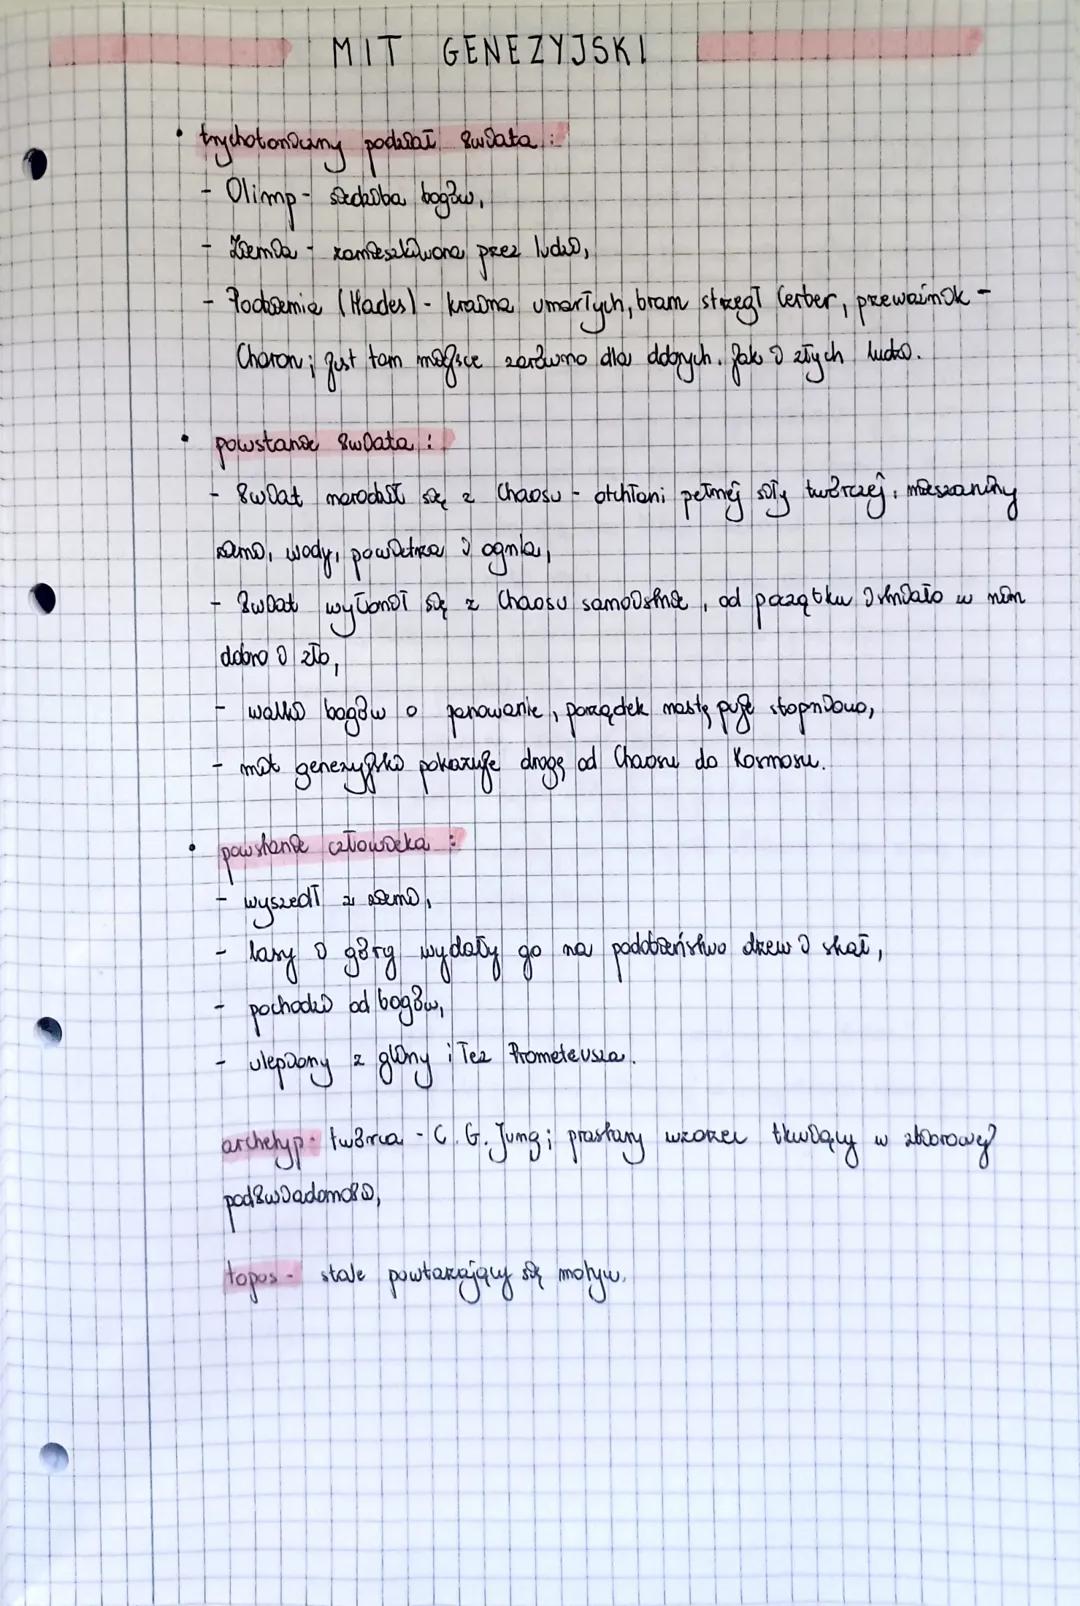 MIT GENEZYJSKI
• trychotomiczny podział świata :
- Olimp - siedziba bogów,
- Ziemia - zamieszkiwana przez ludzi,
- Podziemie (Hades) - kraina umarłych, bram strzegł Cerber, przewoźnik -
Charon ; jest tam miejsce zarówno dla dobrych. jak i złych ludzi.
• powstanie świata :
- świat narodził się z Chaosu - otchłani pełnej siły twórczej, mieszaniny
ziemi, wody, powietrza i ognia,
- świat wyłonił się z Chaosu samoistnie, od początku istniało w nim
dobro i zło,
- walki bogów o panowanie, porządek następuje stopniowo,
- mit genezyjski pokazuje drogę od Chaosu do Kosmosu.
• powstanie człowieka :
- wyszedł z ziemi,
- lasy i góry wydały go na podobieństwo drzew i skał,
- pochodzi od bogów,
- ulepiony z gliny i łez Prometeusza.
archetyp - twórca - C. G. Jung ; prastary wzorzec tkwiący w zbiorowej
podświadomości,
topos - stale powtarzający się motyw.